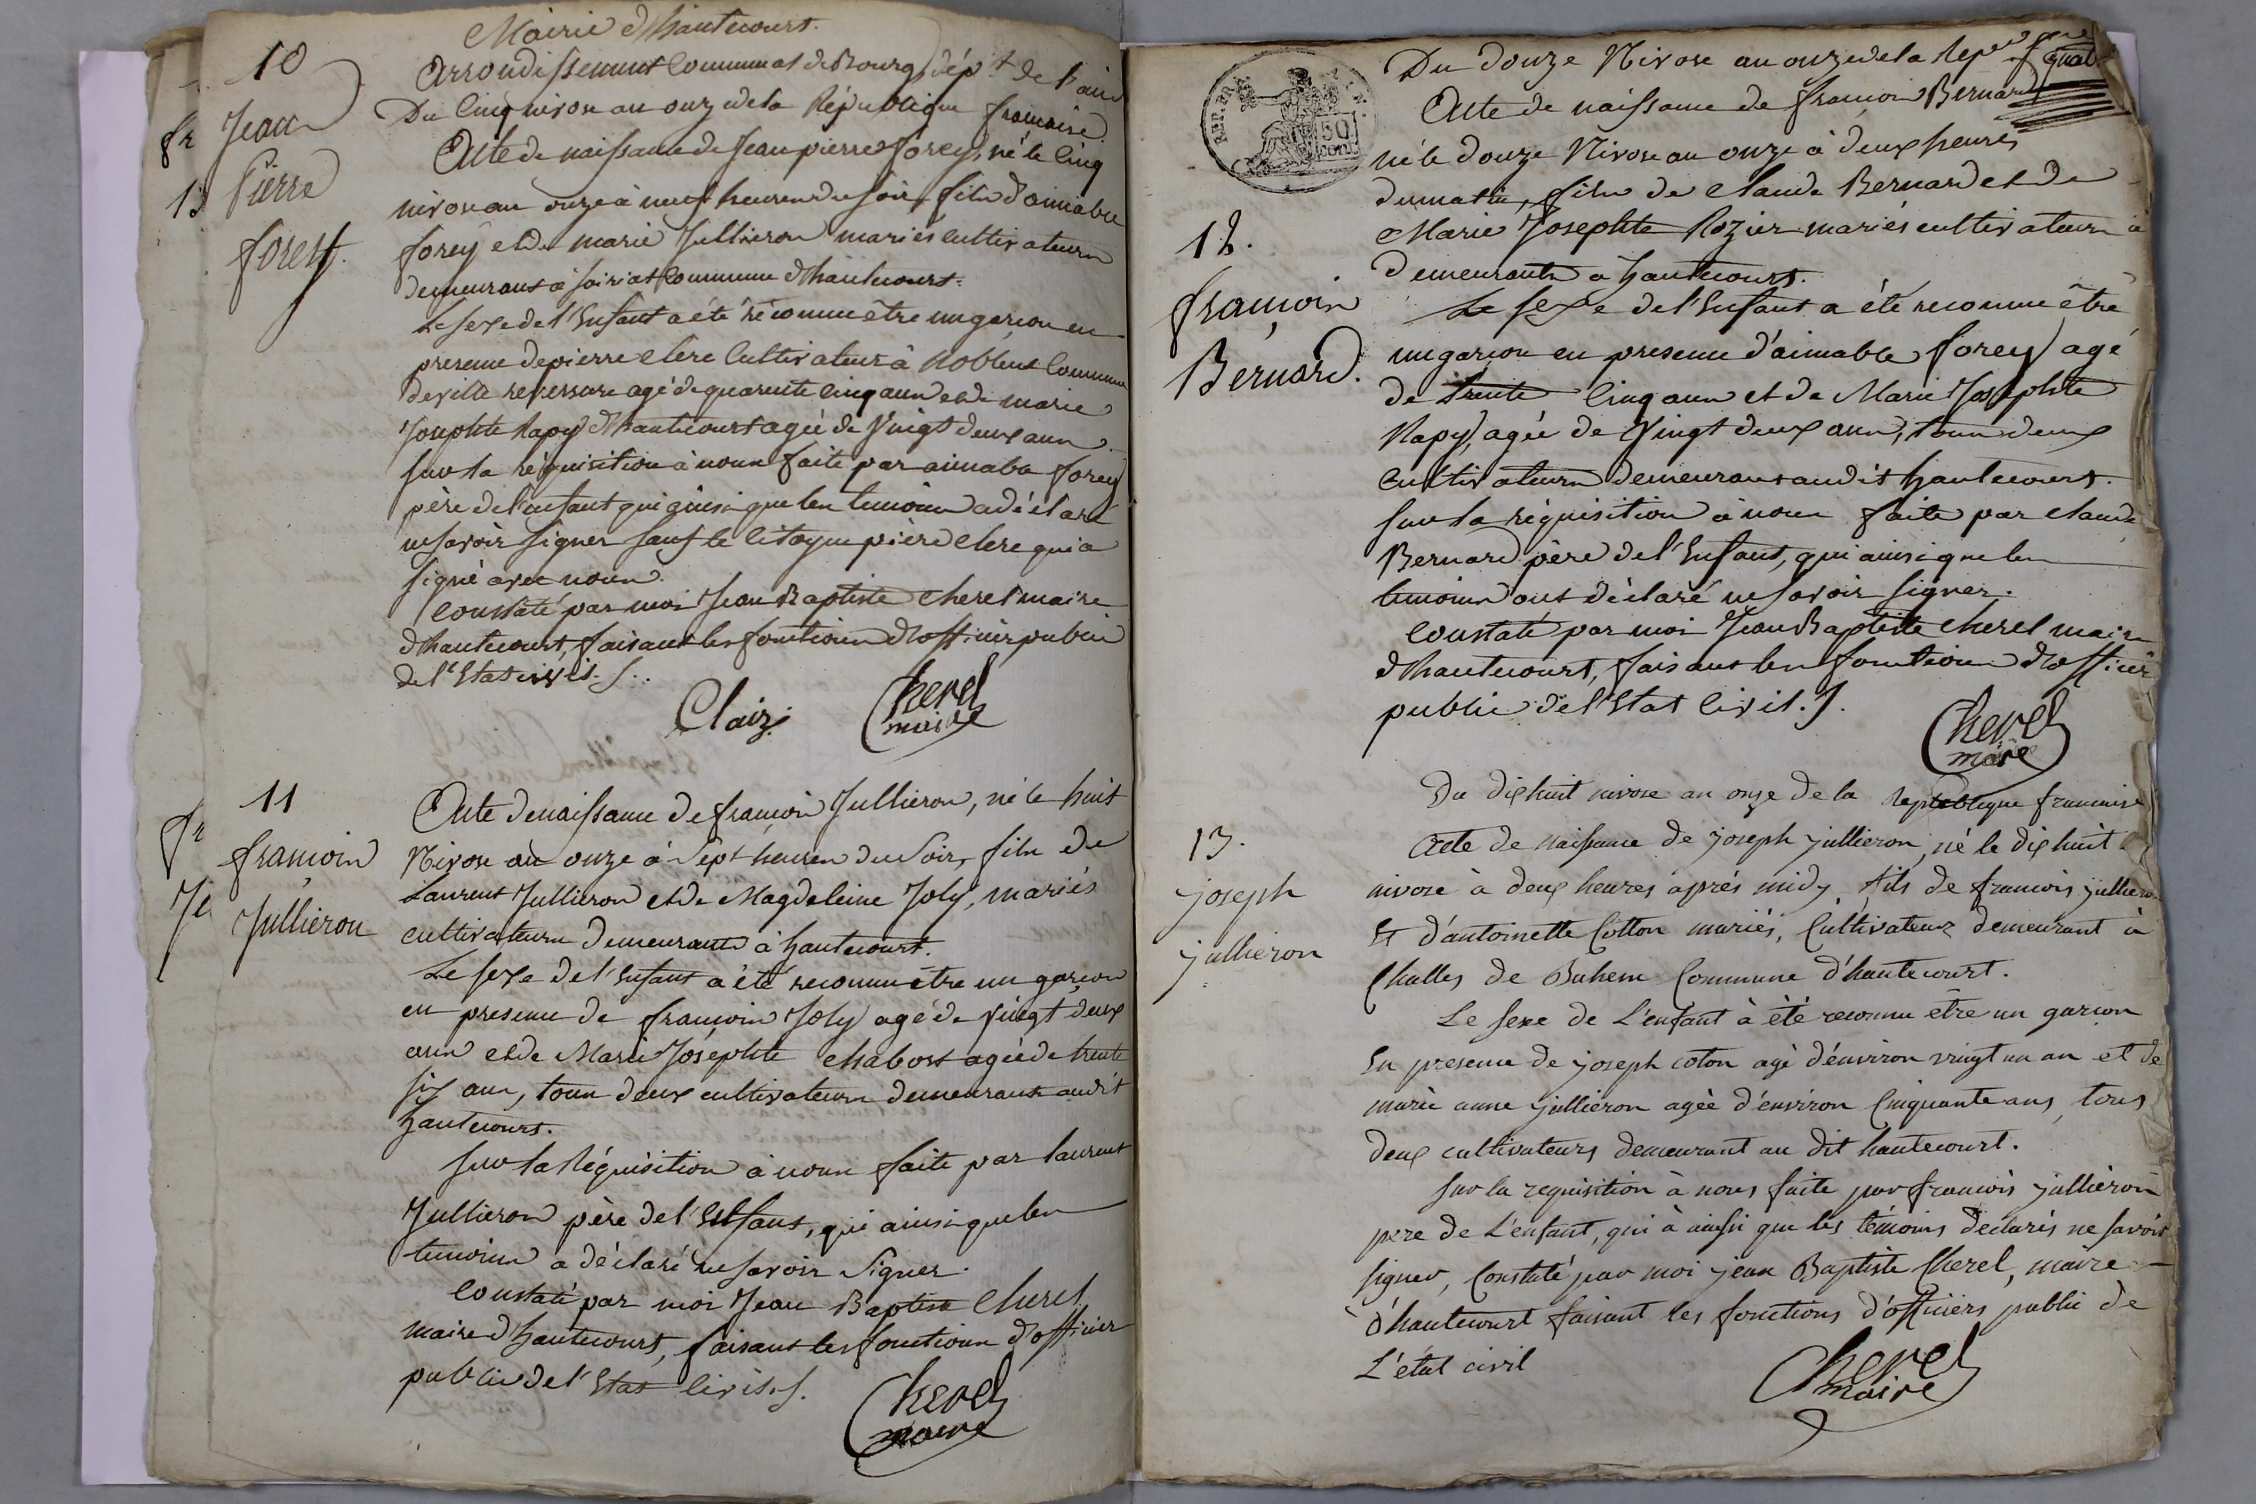 Mairie d'hautecourt.
10
Arrondissement Communal de Bourg dép.t de l'ain
Du Cinq nivose an onze de la République francaise
fr
13
Jean
Pierre
forest.
Acte de naissance de Jean pierre forey, né le Cinq
nivose an onze à neuf heures du soir, fils d'aimable
forey et de marie Jullieron mariés cultivateurs
demeurans à soiriat Commune d'hautecourt.
Le sexe de l'Enfant a été reconnu être un garcon en
presence de pierre clere Cultivateur à Noblens Commune
deville reversure agé de quarente cinq ans et de marie
Josephte Rapy d'hautecourt agée de Vingt deux ans
sur la réquisition à nous faite par aimable forey
père de l'enfant qui ainsi que les temoins a déclaré
ne savoir signer sauf le citoyen pière clere qui a
signé avec nous.
Constaté par moi Jean Baptiste Cherel maire
d'hautecourt, faisant les fonctions d'officier public
de l'Etat civil. /.
Clair Cherel
maire
11
fr
Je
francois
Jullieron
Acte de naissance de francois Jullieron, né le huit
Nivose an onze à Sept heures du Soir, fils de
Laurent Jullieron et de Magdeleine Joly, mariés
cultivateurs demeurants à hautecourt.
Le sexe de l'Enfant a été reconnu être un garcon
en presence de francois Joly agé de Vingt deux
ans et de Marie Josephte chabost agée de trente
six ans, tous deux cultivateurs demeurans audit
hautecourt.
sur la Réquisition à nous faite par laurent
Jullieron père de l'Enfant, qui ainsi que les
temoins a déclaré ne savoir Signer.
Constaté par moi Jean Baptiste Cherel
maire d'hautecourt, faisant les fonctions d'officier
public de l'Etat Civil. /.
Cherel
maire
REP. FRA.
50
CEN.
Du Douze Nivose an onze de la Rep.
Acte de naissance de francois Bernard
né le douze Nivose an onze à deux heures
du matin, fils de claude Bernard et de
Marie Josephte Rozier mariés cultivateurs à
demeurants à hautecourt.
12.
francois
Bernard.
Le sexe de l'Enfant a été reconnu être
un garcon en presence d'aimable forey agé
de trente Cinq ans et de Marie Josephte
Rapy, agée de Vingt deux ans, tous deux
Cultivateurs demeurans audit hautecourt.
sur la réquisition à nous faite par claude
Bernard père de l'Enfant, qui ainsi que les
temoins ont déclaré ne savoir signer.
Constaté par moi Jean Baptiste Cherel maire
d'hautecourt, faisant les fonctions d'officier
public de l'Etat Civil. /.
Cherel
maire
Du dix huit nivose an onze de la republique francaise
13.
joseph
jullieron
Acte de naissance de joseph jullieron, né le dix huit
nivose à deux heures après midy, fils de francois jullieron
Et d'antoinette Cotton mariés, Cultivateurs demeurant à
Challes de Buhem Commune d'hautecourt.
Le sexe de L'enfant à été reconnu être un garcon
En presence de joseph coton agé d'environ vingt un an et de
marie anne jullieron agée d'environ Cinquante ans, tous
deux cultivateurs demeurant au dit hautecourt.
Sur la requisition à nous faite par francois jullieron
pere de L'enfant, qui à ainsi que les témoins declarés ne savoir
signer, Constaté par moi jean Baptiste Cherel, maire
d'hautecourt faisant les fonctions d'officiers public de
L'état civil
Cherel
maire